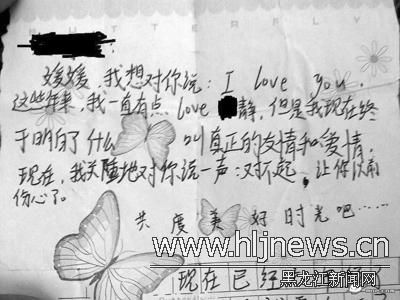 BUTTERFLY
媛媛,我想对你说:I love you.
这些年来,我一直有点 love 静,但是我现在终
于明白了什么叫真正的友情和爱情.
现在,我天陆地对你说一声:对不起,让你以前
伤心了。
共度美好时光吧……
www.hljnews.cn
现在已经
黑龙江新闻网